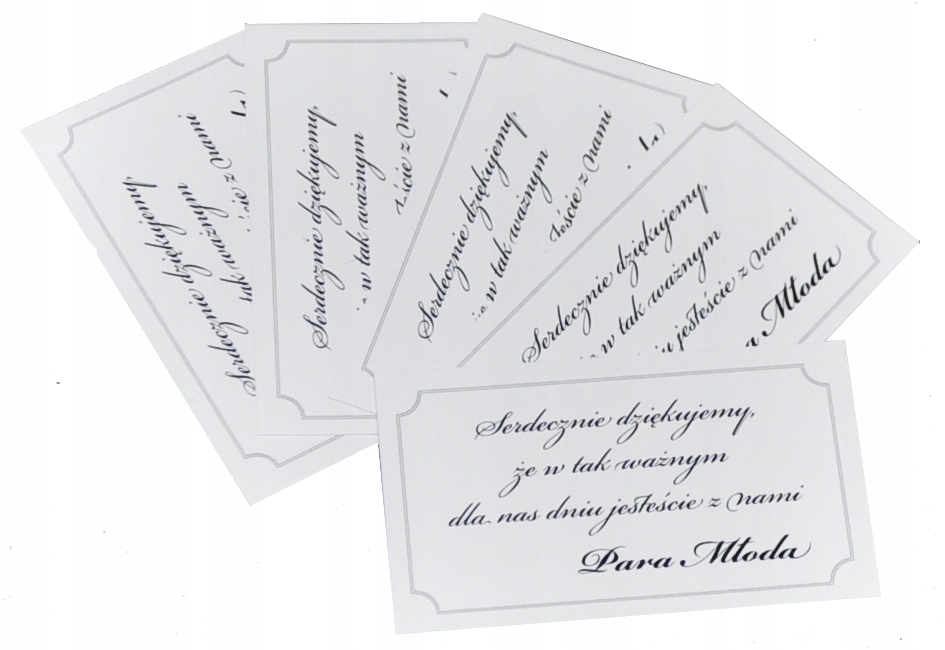 Serdecznie dziękujemy,
tak ważnym
z nami
Serdecznie dziękujemy,
w tak ważnym
z nami
Serdecznie dziękujemy,
w tak ważnym
jesteście z nami
Serdecznie dziękujemy,
w tak ważnym
jesteście z nami
Młoda
Serdecznie dziękujemy,
że w tak ważnym
dla nas dniu jesteście z nami
Para Młoda